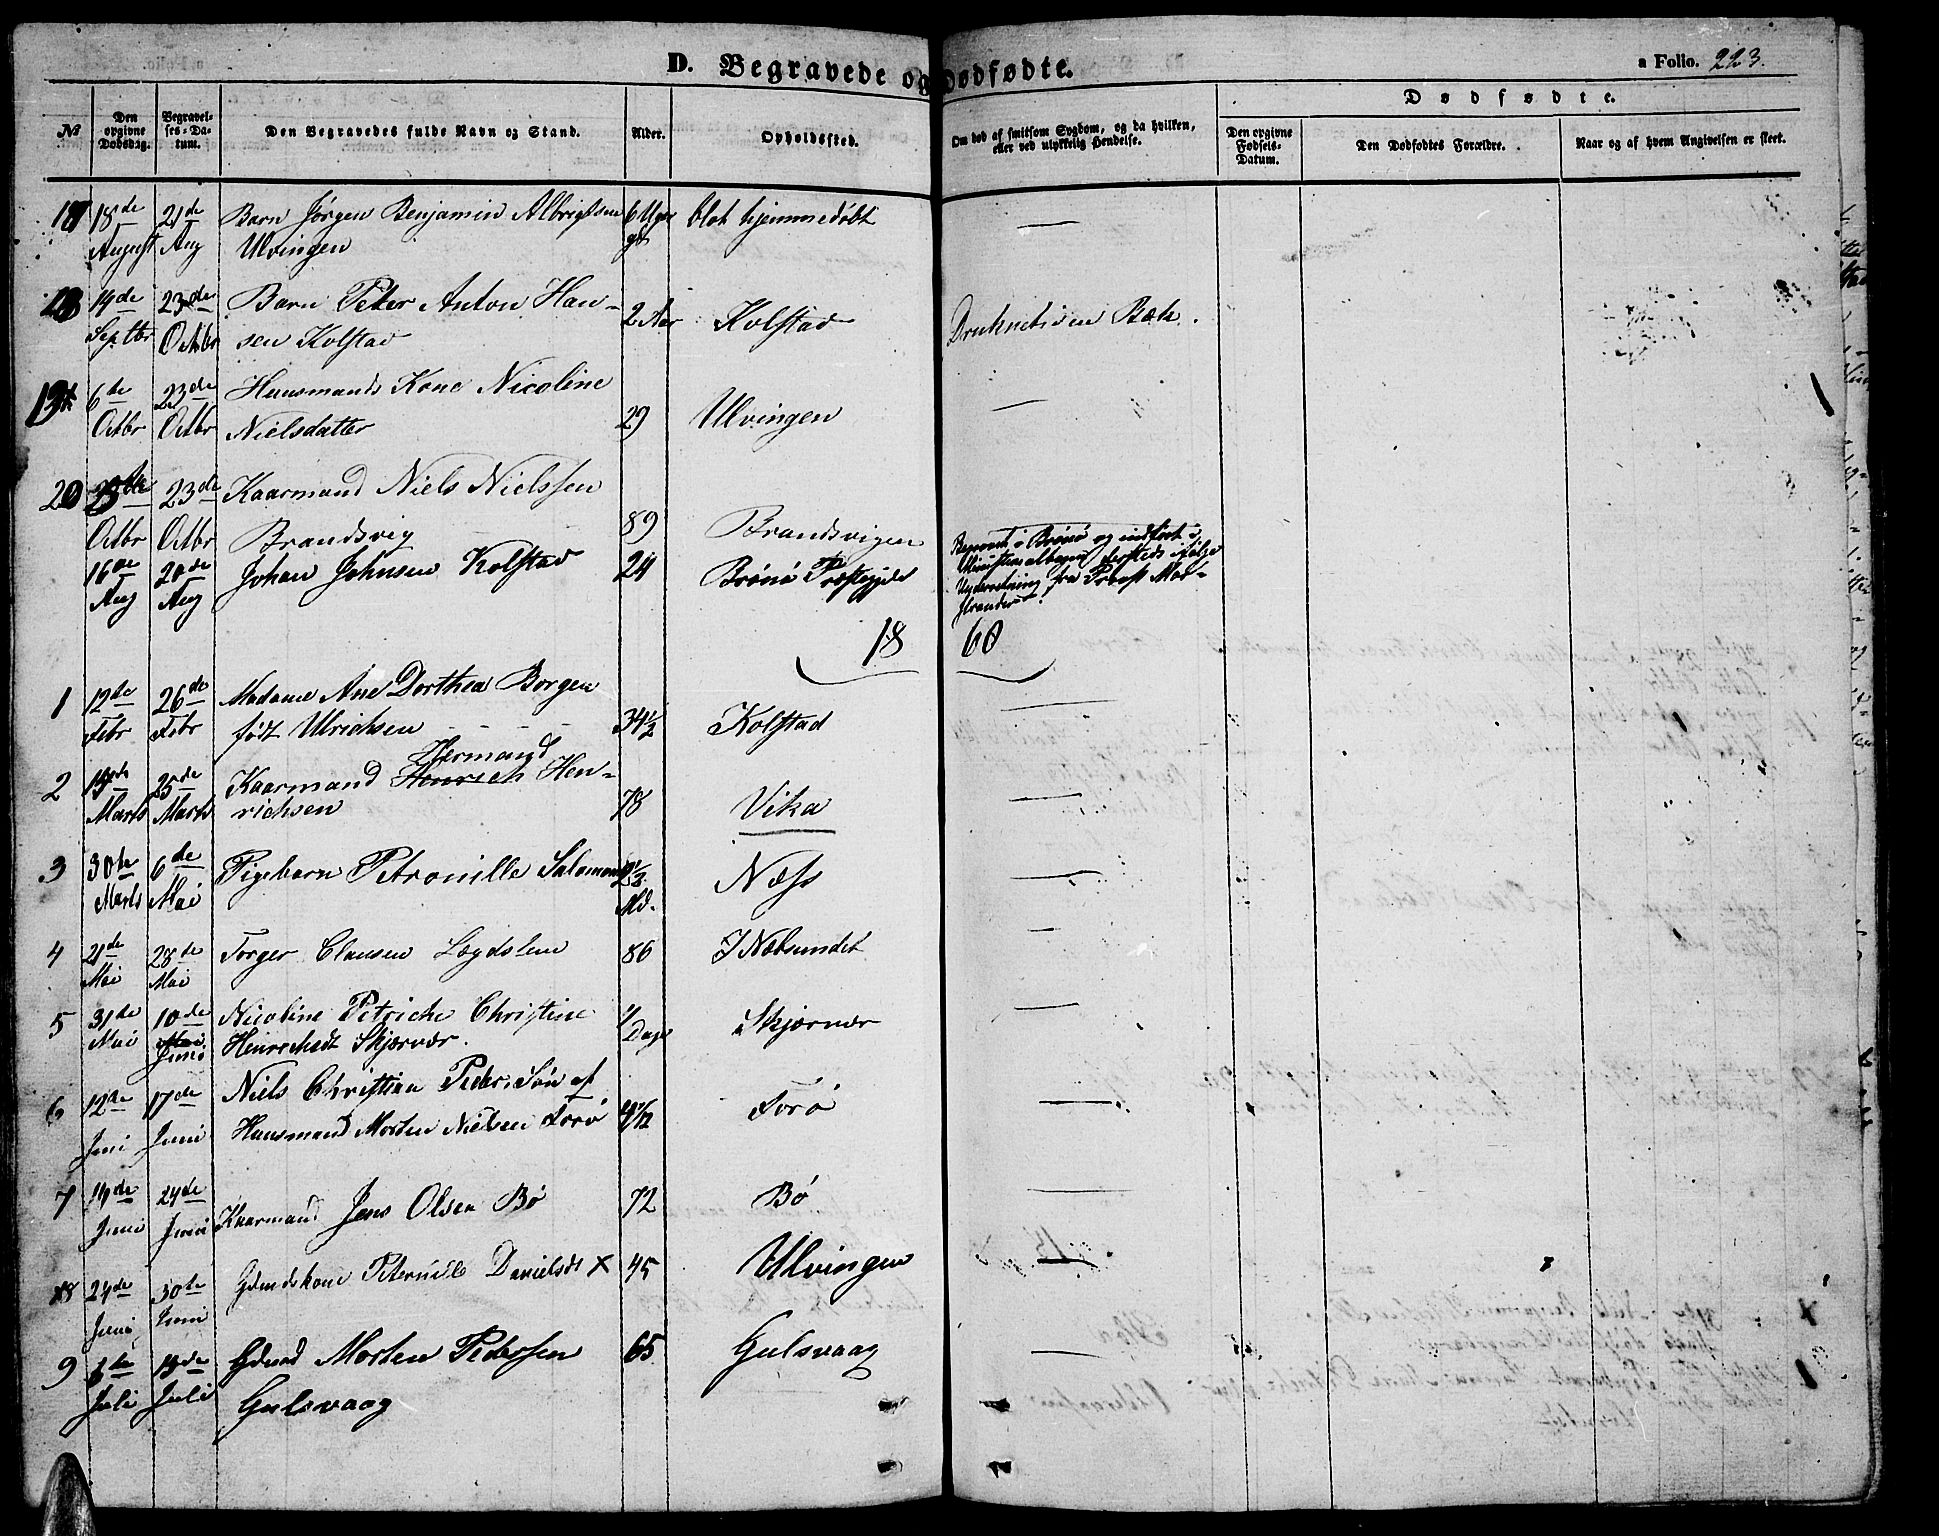 D. Begravede og Dødfødte.
a Folio. 223.
Dødfødte.
№
Den opgivne Dødsdag.
Begravelses-Datum.
Den Begravedes fulde Navn og Stand.
Alder.
Opholdssted.
Om død af smitsom Sygdom, og da hvilken, eller ved ulykkelig Hendelse.
Den opgivne Fødsels-Datum.
Den Dødfødtes Forældre.
Naar og af hvem Angivelsen er skeet.
18de 21de Barn Jørgen Benjamin Albrigtsen 6 Uger blot hjemmedøbt —
August Aug Ulvingen gl.
14de 23de Barn Peter Anton Han-
Septbr Octbr sen Kolstad 2 Aar Kolstad Druknet i en Bæk.
6te 23de Huusmands Kone Nicoline
Octbr Octbr Nielsdatter 29 Ulvingen —
20 23de Kaarmand Niels Nielssen
Octbr Octbr Brandsvig 89 Brandsvigen
16de 20de Johan Johnsen Kolstad 24 Brønø Præstegjeld
Aug Aug
Begravet i Brønø og indført i
Ministerialbogen dersteds ifølge
Underretning fra Provst Mar-
strander.
18 60
1 12te 26de Madame Ane Dorthea Borgen
Febr Febr født Ulrichsen 34½ Kolstad —
Hermand
2 25de Kaarmand Henrich Hen-
Marts Marts richsen 78 Vika —
3 30te 6de Pigebarn Petronille Næss —
Marts Mai Md.
4 21de 28de Torger Clausen Lægdslem 86 I Nælsundet —
Mai Mai
5 31de 10de Nicoline Petriche Christine Skjærvær —
Mai Mai Juni Henrichsdt Skjærvær. Dage
6 12te 17de Niels Christian Peder, Søn af
Juni Juni Huusmand Morten Nielsen Torø Torø —
7 14de 24de Kaarmand Jens Olsen Bø 72 Bø —
Juni Juni
8 24de 30te Gdmdskone Peternille Danielsdt x 45 Ulvingen —
Juni Juni
9 Gdmd Morten Pedersen 65 Gulsvaag —
Juli Juli Gulsvaag